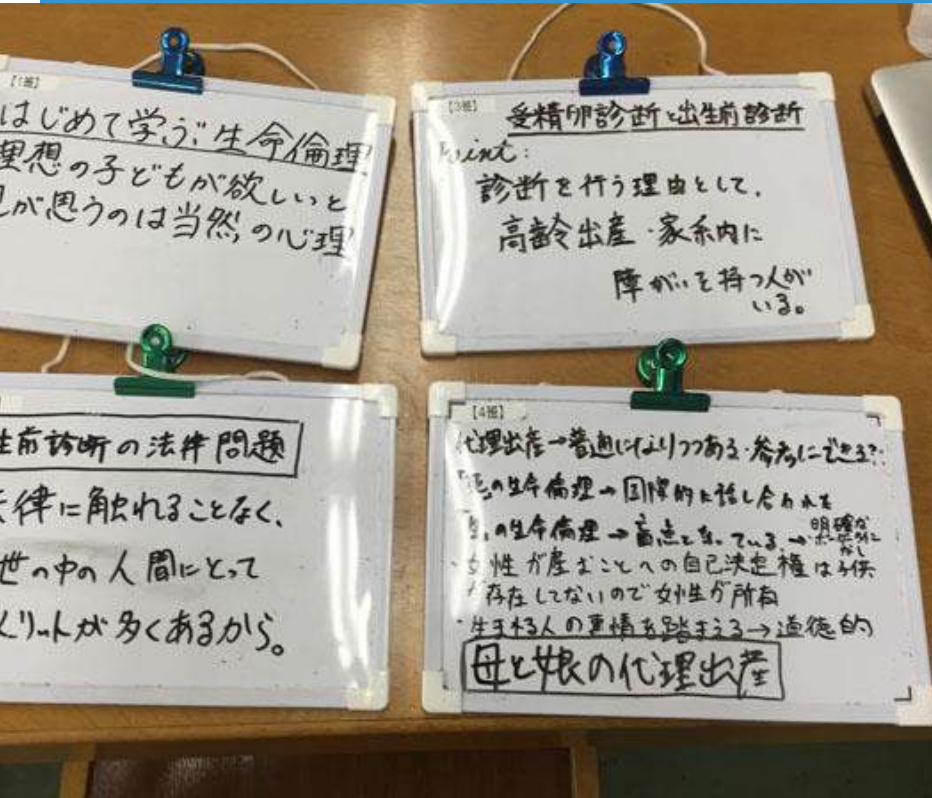 【1班】
はじめて学ぶ生命倫理
理想の子どもが欲しいと
が思うのは当然の心理
【3班】
受精卵診断と出生前診断
Point:
診断を行う理由として、
高齢出産・家系内に
障がいを持つ人が
いる。
生前診断の法律問題
法律に触れることなく、
世の中の人間にとって
メリットが多くあるから。
【4班】
代理出産→普通になりつつある・参考にできる?
の生命倫理→国際的に話し合われる
の生命倫理→盲点となっている→明確な
ボーダーライン
なし
・女性が産むことへの自己決定権は子供
が存在してないので女性が所有
・生まれる人の事情を踏まえる→道徳的
母と娘の代理出産